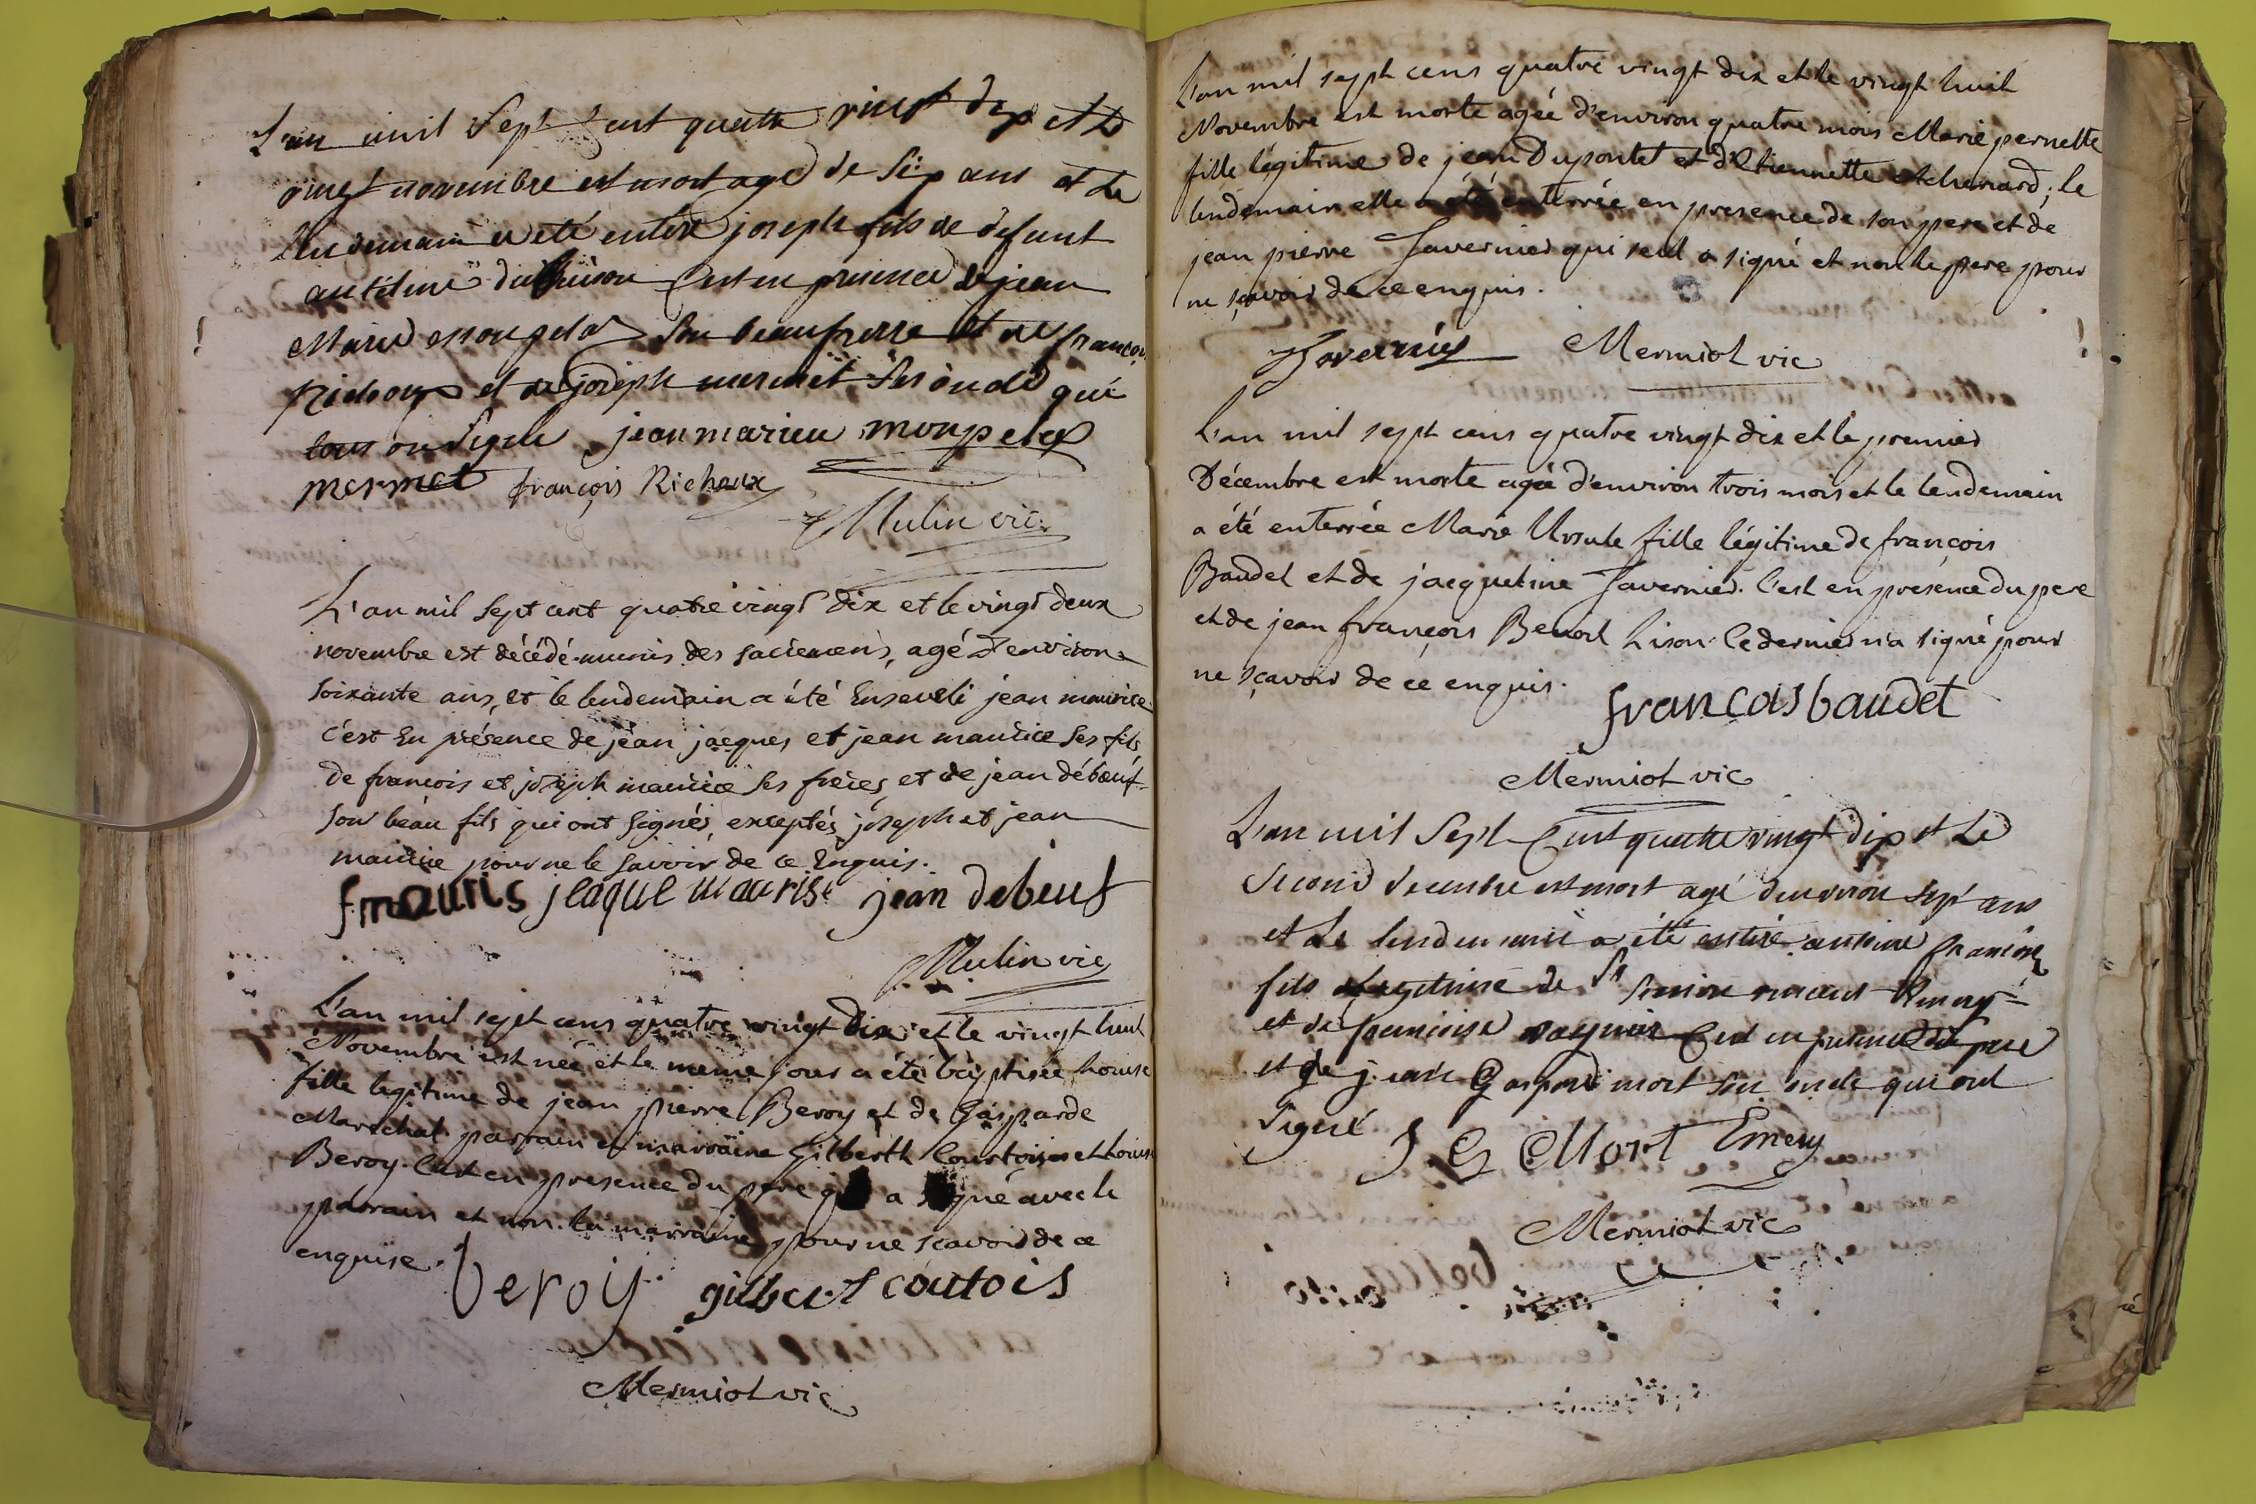 L'an mil Sept Cent quatre vingt dix et le
vingt novembre est mort agé de six ans et le
lendemain a eté enteré joseph fils de defunt
antoine du buison C'est en presence de jean
Marie mongela son beaufrere et de françois
Richoux et de joseph mermet ses oncle qui
tous on signé jean marieu monpela
mermet françois Richoux
Mulin vic.
L'an mil sept cent quatre vingt dix et le vingt deux
novembre est décédé munis des sacremens, agé d'environ
soixante ans, et le lendemain a été Enseveli jean maurice
c'est En présence de jean jacques et jean maurice ses fils
de francois et joseph maurice ses freres et de jean débœuf
son beau fils qui ont signés, exceptés joseph et jean
maurice pour ne le savoir de ce Enquis.
f mauris jeaque maurise jean debeuf
Mulin vic
L'an mil sept cens quatre vingt dix et le vingt huit
Novembre est née et le meme jour a été baptisée Louise
fille legitime de jean pierre Beroy et de Gasparde
Marechal parrain et marraine Gilberth Courtois et Louise
Beroy. C'est en presence du pere qui a signé avec le
parrain et non la marraine pour ne scavoir de ce
enquise. beroy gilbert coutois
Mermiot vic
L'an mil sept cens quatre vingt dix et le vingt huit
Novembre est morte agée d'environ quatre mois Marie pernette
fille légitime de jean Dupontet et d'Etiennette ; le
lendemain elle a été enterrée en presence de son pere et de
jean pierre Javernier qui seul a signé et non le pere pour
ne sçavoir de ce enquis.
Javernier Mermiot vic
L'an mil sept cens quatre vingt dix et le premier
Décembre est morte agée d'environ trois mois et le lendemain
a été enterrée Marie Ursule fille légitime de françois
Baudet et de jacqueline Javernier. C'est en présence du pere
et de jean françois Benoit Lison. Ce dernier n'a signé pour
ne sçavoir de ce enquis.
françois baudet
Mermiot vic
L'an mil Sept Cent quatre vingt dix et le
second decembre est mort agé denviron sept ans
et le lendemain a été enteré antoine françois
fils legitime de Sr Emery
et de francoise C'est en presence du pere
et de jean Gaspard mort son oncle qui ont
signé J G Mort Emery
Mermiot vic